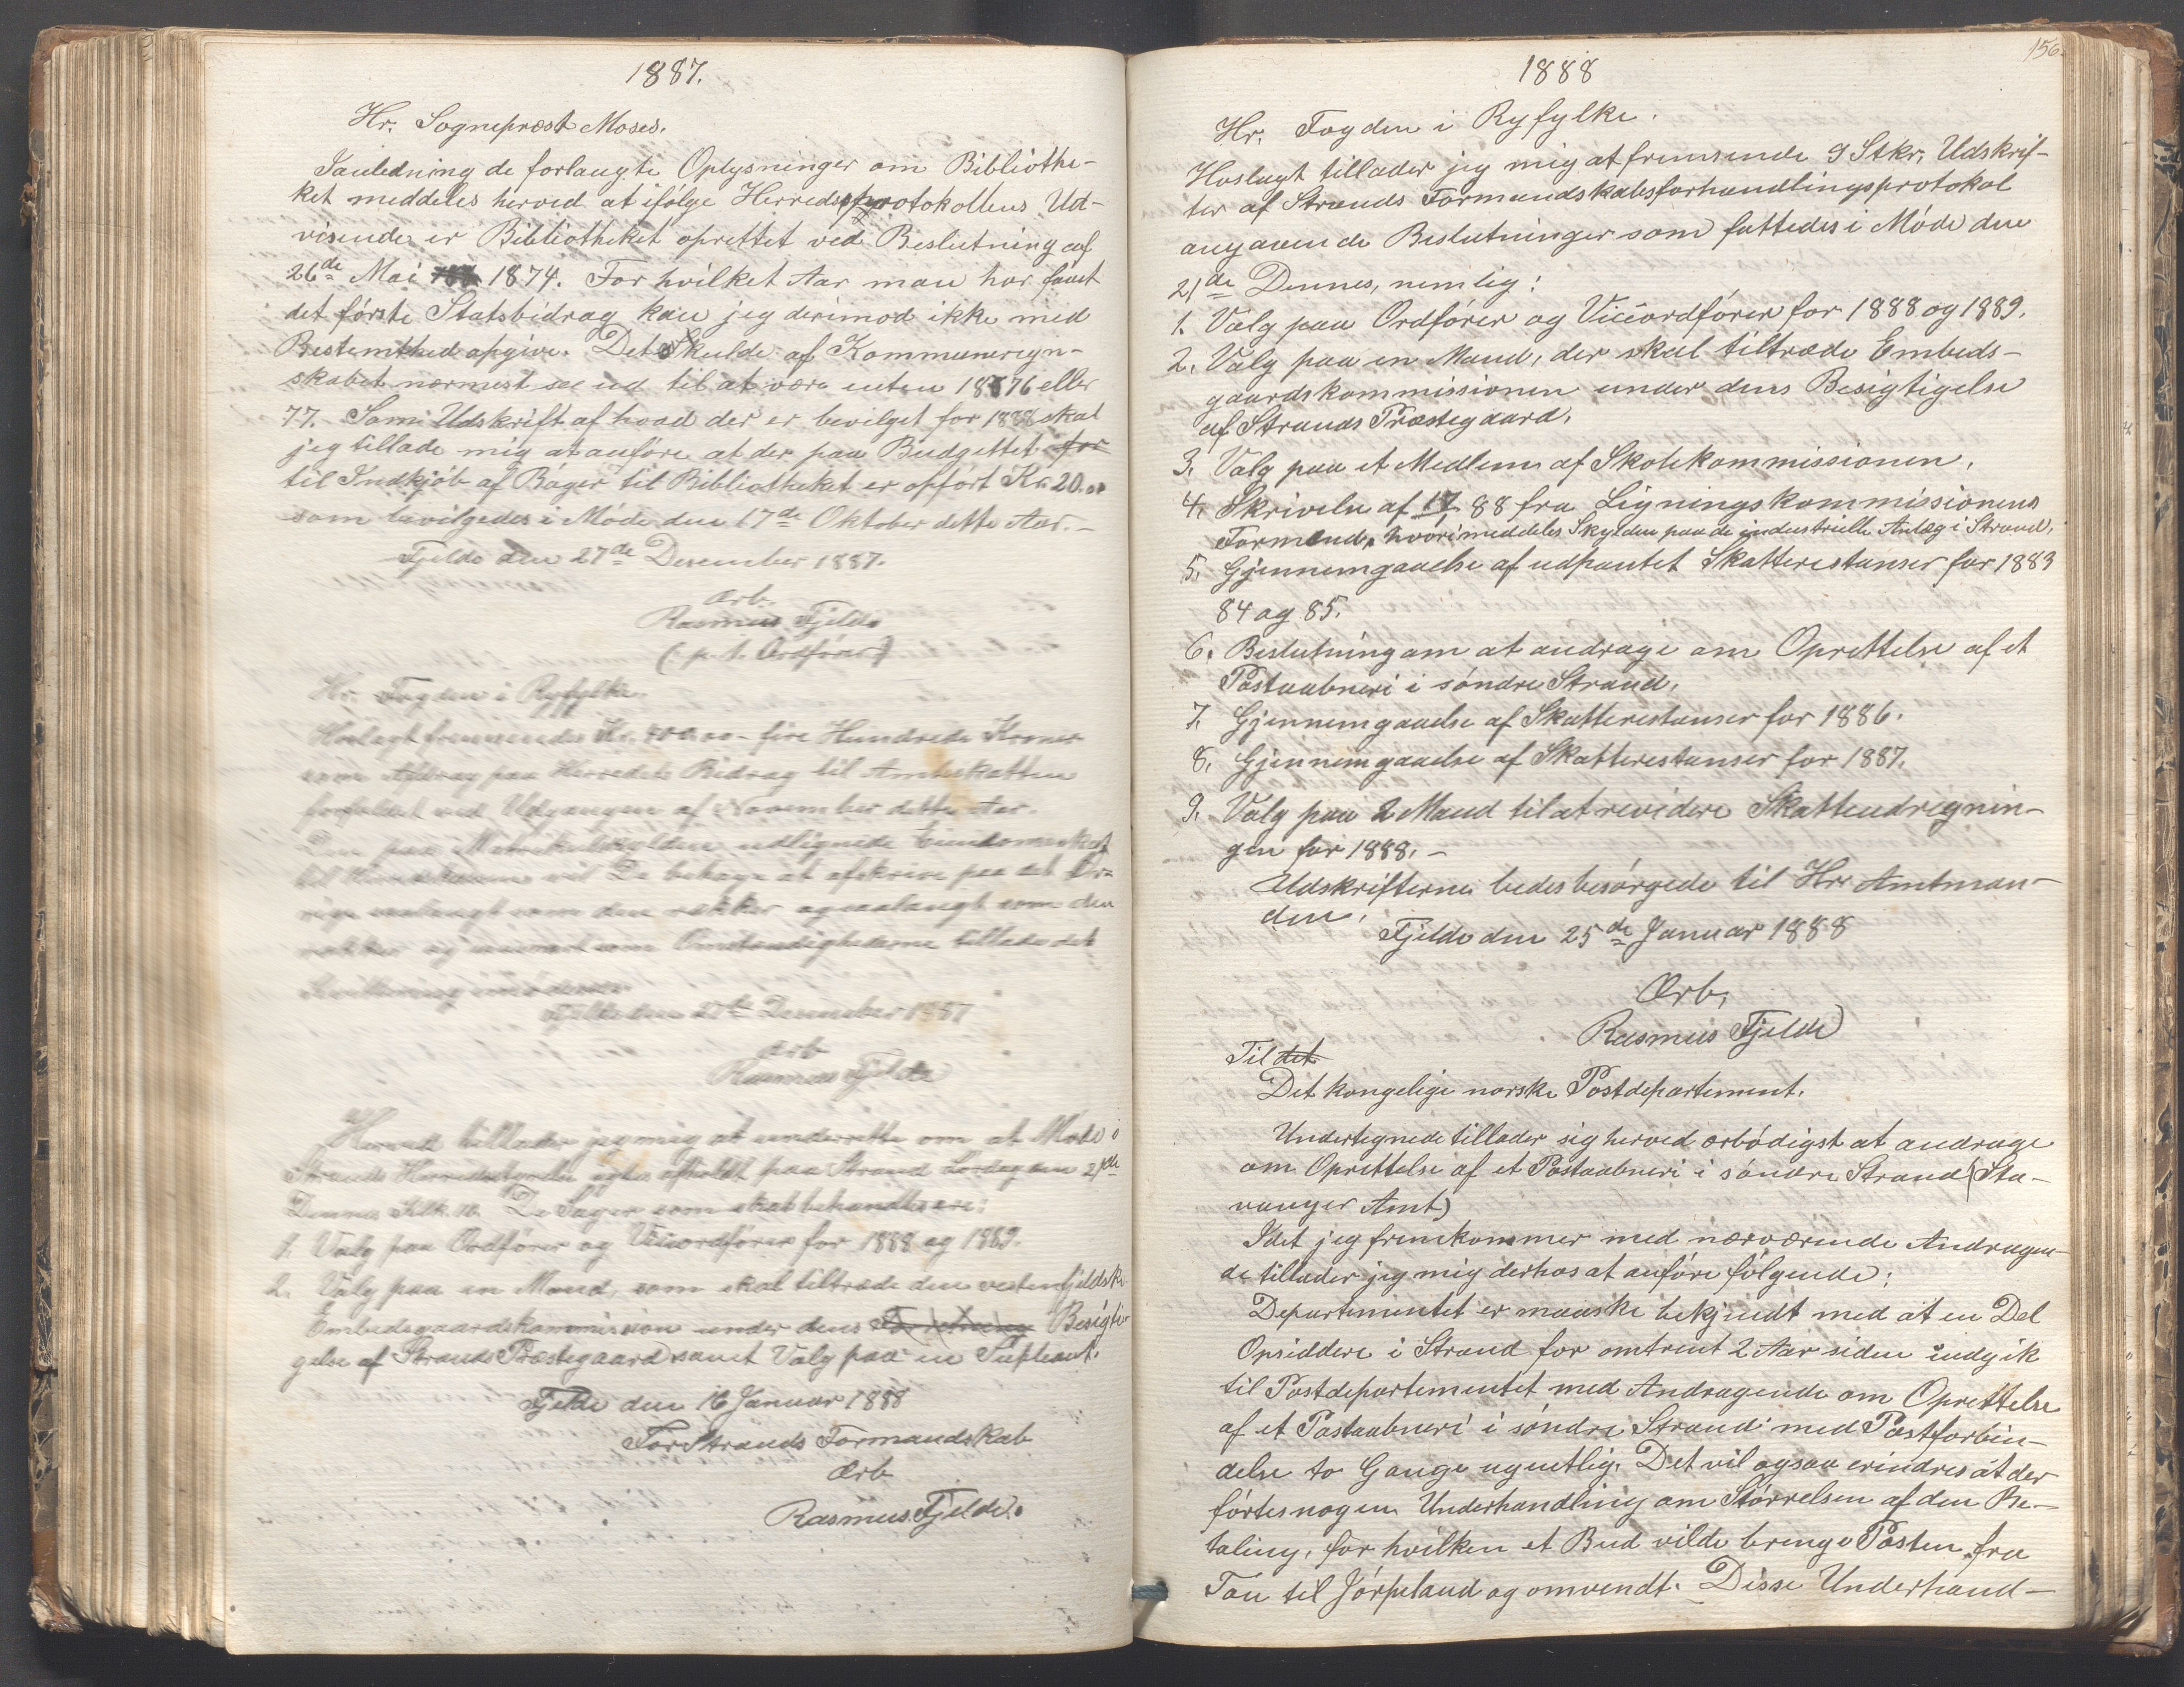 1887.
Hr. Sogneprest Moses.
I anledning de forlangte Oplysninger om Bibliothe-
ket meddeles herved at ifølge Herredsprotokollens Ud-
visende er Bibliotheket oprettet ved Beslutning af
26de Mai 1874. For hvilket Aar man har faaet
det første Statsbidrag kan jeg derimod ikke med
Bestemthed opgive. Det Skulde af Kommuneregn-
skabet nærmest see ud til at være enten 1876 eller
77. Som Udskrift af hvad der er bevilget for 1888 skal
jeg tillade mig at anføre at der paa Budgettet for
til Indkjøb af Bøger til Bibliotheket er opført Kr. 20.00
som bevilgedes i Møde den 17de Oktober dette Aar.-
Fjelde den 27de Desember 1887.
Ærb.
Rasmus Fjelde
(p. t. Ordfører)
Hr. Fogden i Ryfylke.
Hoslagt fremsendes Kr. 400.00 - fire Hundrede Kroner
som Afdrag paa Herredets Bidrag til Amtsskatten
forfaldet ved Udgangen af November dette Aar.
Den paa Matrikulskylden udlignede Eiendomsskat
til vil De behage at afskrive paa det Øv-
rige saalangt som den rækker og saalangt som den
rækker og som Omstændighederne tillade det
Kvittering imødesees.
Fjelde den 27de Desember 1887
Ærb
Rasmus Fjelde
Herved tillader jeg mig at underrette om at Møde i
Strands Herredsstyrelse agtes afholdt paa Strand Lørdag den 21de
Dennes Klk. 10. De Sager som skal behandles ere:
1. Valg paa Ordfører og Viceordfører for 1888 og 1889.
2. Valg paa en Mand, som skal tiltræde den vestenfjeldske
Embedsgaardskommission under dens Forretning Besigti-
gelse af Strands Præstegaard samt Valg paa en Supleant.
Fjelde den 16 Januar 1888
For Strands Formandskab
Ærb
Rasmus Fjelde.
156.
1888
Hr. Fogden i Ryfylke.
Hoslagt tillader jeg mig at fremsende 9 Stkr. Udskrif-
ter af Strands Formandskabsforhandlingsprotokol
angaaende Beslutninger som fattedes i Møde den
21de Dennes, nemlig:
1. Valg paa Ordfører og Viceordfører for 1888 og 1889.
2. Valg paa en Mand, der skal tiltræde Embeds-
gaardskommissionen under dens Besigtigelse
af Strands Præstegaard.
3. Valg paa et Medlem af Skolekommissionen.
4. Skrivelse af 17 88 fra Ligningskommissionens
Formand, hvori meddeles Skylden paa de industrielle Anlæg i Strand.
5. Gjennemgaaelse af udpantet Skatterestanser for 1883
84 og 85.
6. Beslutning om at andrage om Oprettelse af et
Postaabneri i søndre Strand.
7. Gjennemgaaelse af Skatterestanser for 1886.
8. Gjennemgaaelse af Skatterestanser for 1887.
9. Valg paa 2 Mand til at revidere Skatteudregnin-
gen for 1888. -
Udskrifterne bedes besørgede til Hr. Amtman-
den.
Fjelde den 25de Januar 1888
Ærb,
Rasmus Fjelde
Til det
Det kongelige norske Postdepartement.
Undertegnede tillader sig herved ærbødigst at andrage
om Oprettelse af et Postaabneri i søndre Strand (Sta-
vanger Amt)
Idet jeg fremkommer med nærværende Andragen-
de tillader jeg mig derhos at anføre følgende:
Departementet er maaske bekjendt med at en Del
Opsiddere i Strand for omtrent 2 Aar siden indgik
til Postdepartementet med Andragende om Oprettelse
af et Postaabneri i søndre Strand med Postforbin-
delse to Gange ugentlig. Det vil ogsaa erindres at der
førtes nogen Underhandling om Størrelsen af den Be-
taling, for hvilken et Bud vilde bringe Posten fra
Tau til Jørpeland og omvendt. Disse Underhand-